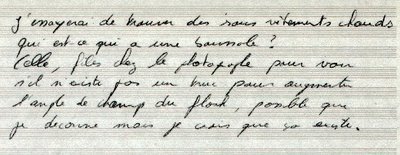 j'essayerai de trouver des sous vêtements chauds
qui est-ce qui a une boussole ?
Colle, files chez le photographe pour voir
s'il n'existe pas un truc pour augmenter
l'angle de champ du flash, possible que
je déconne mais je crois que ça existe.